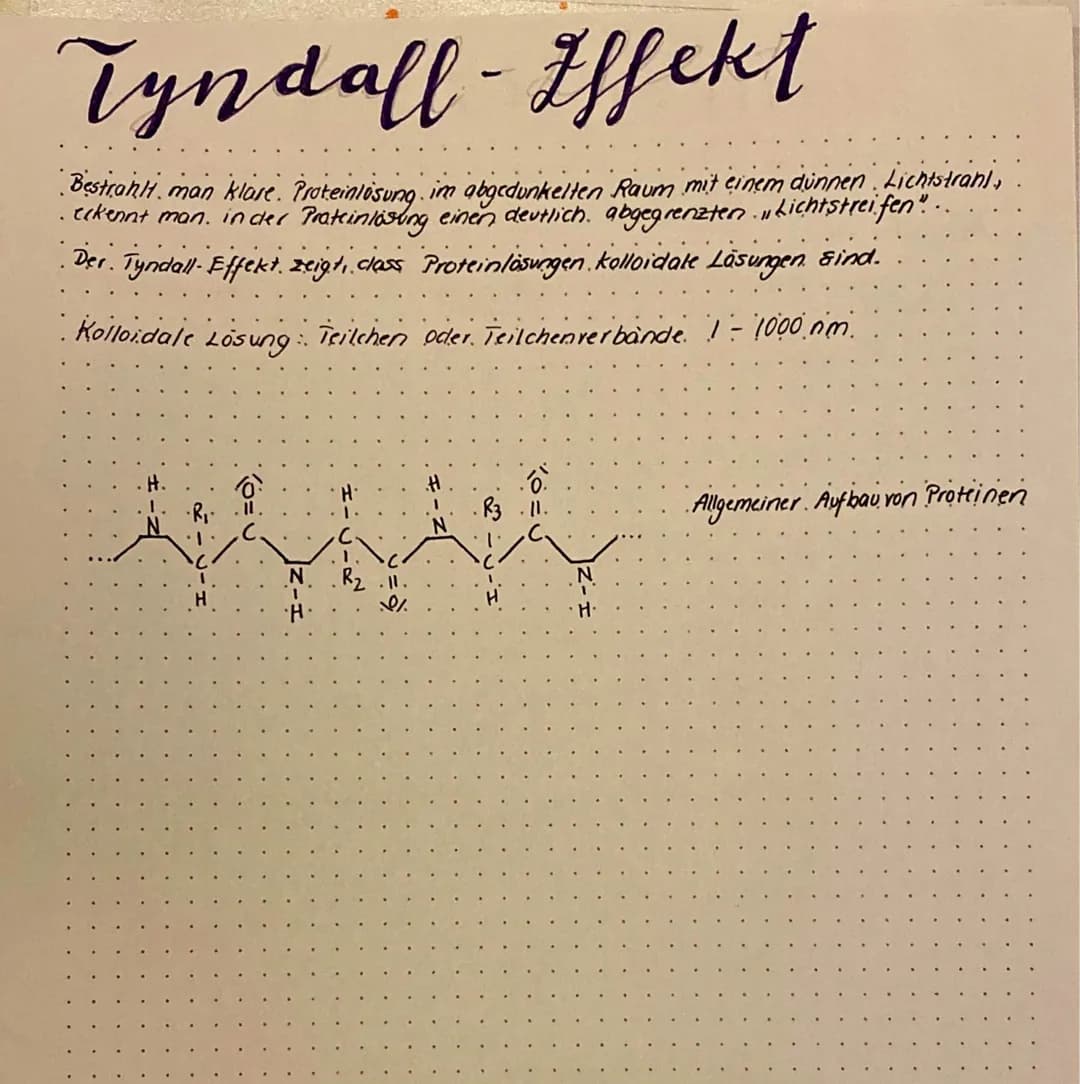 Tyndall-Effekt
Bestrahlt man klare Proteinlösung im abgedunkelten Raum mit einem dünnen Lichtstrahl,
erkennt man in der Proteinlösung einen deutlich abgegrenzten „Lichtstreifen".
Der Tyndall-Effekt zeigt, dass Proteinlösungen kolloidale Lösungen sind.
Kolloidale Lösung: Teilchen oder Teilchenverbände 1 - 1000 nm.
H R₁ O H H R₃ O
Allgemeiner Aufbau von Proteinen
N C C N C
... C C C ...
N R₂ O N
H H H H